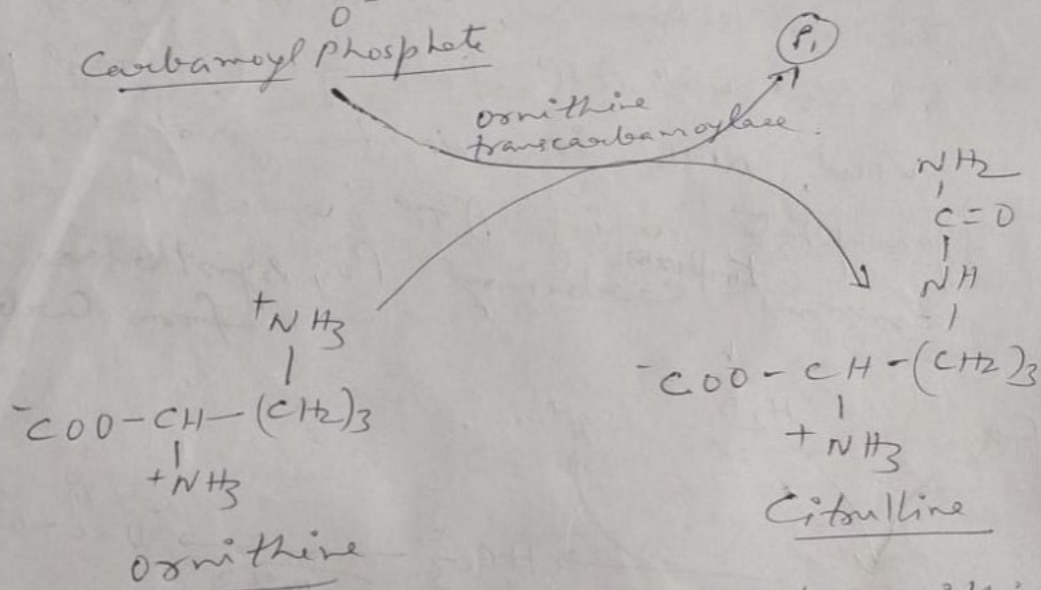 O -
Carbamoyl Phosphate
Pi
ornithine
transcarbamoylase.
NH2
C=O
NH
+NH3
-COO-CH-(CH2)3
+NH3
ornithine
-COO-CH-(CH2)3
+NH3
Citrulline